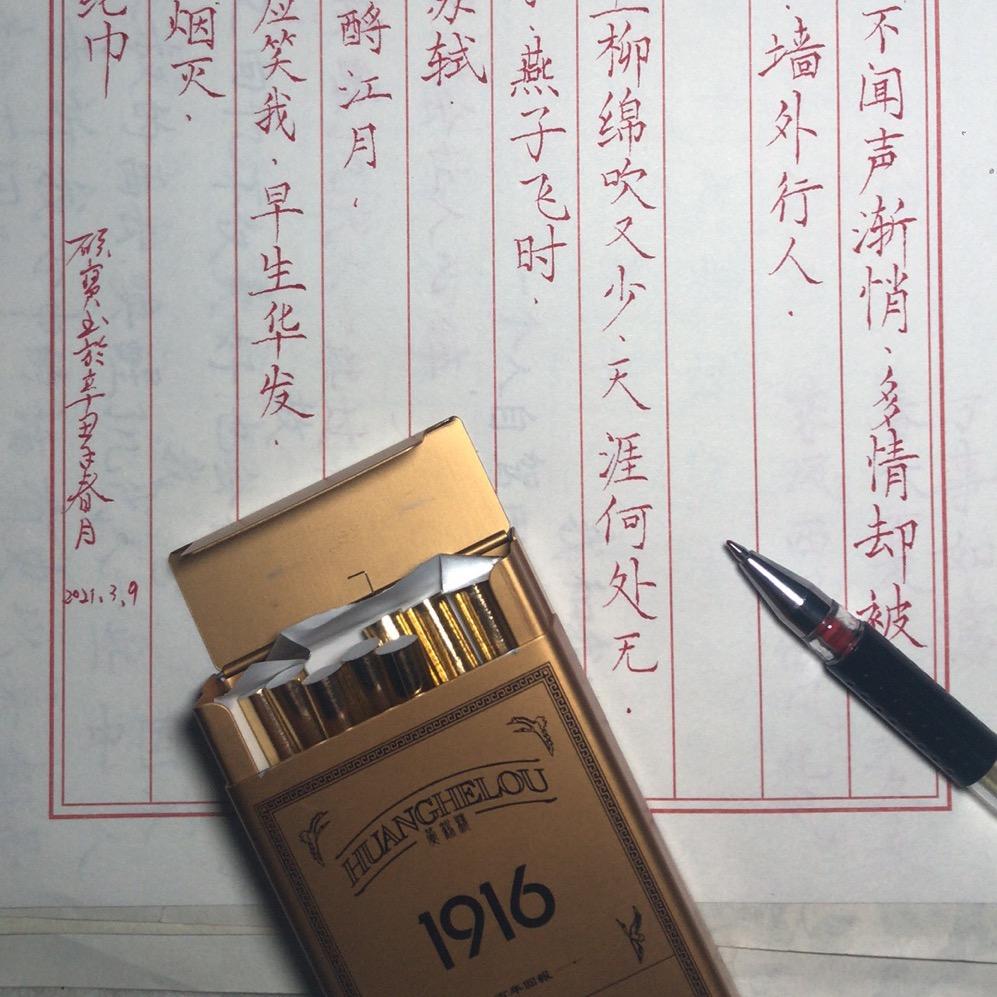 不闻声渐悄、多情却被
、墙外行人.
柳绵吹又少、天涯何处无.
、燕子飞时.
苏轼.
酹江月.
应笑我、早生华发.
烟灭、
纶巾
於辛丑年春月
2021.3.9
HUANGHELOU
黄鹤楼
1916